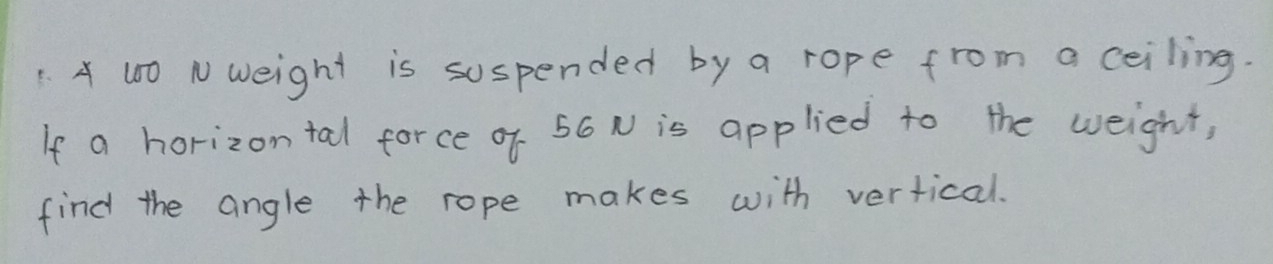 A 100 N weight is suspended by a rope from a ceiling.
If a horizontal force of 56 N is applied to the weight,
find the angle the rope makes with vertical.